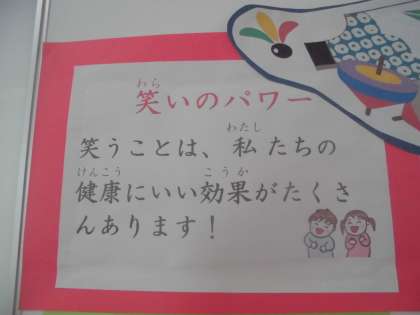 わら
笑いのパワー
わたし
笑うことは、私たちの
けんこう こうか
健康にいい効果がたくさ
んあります！